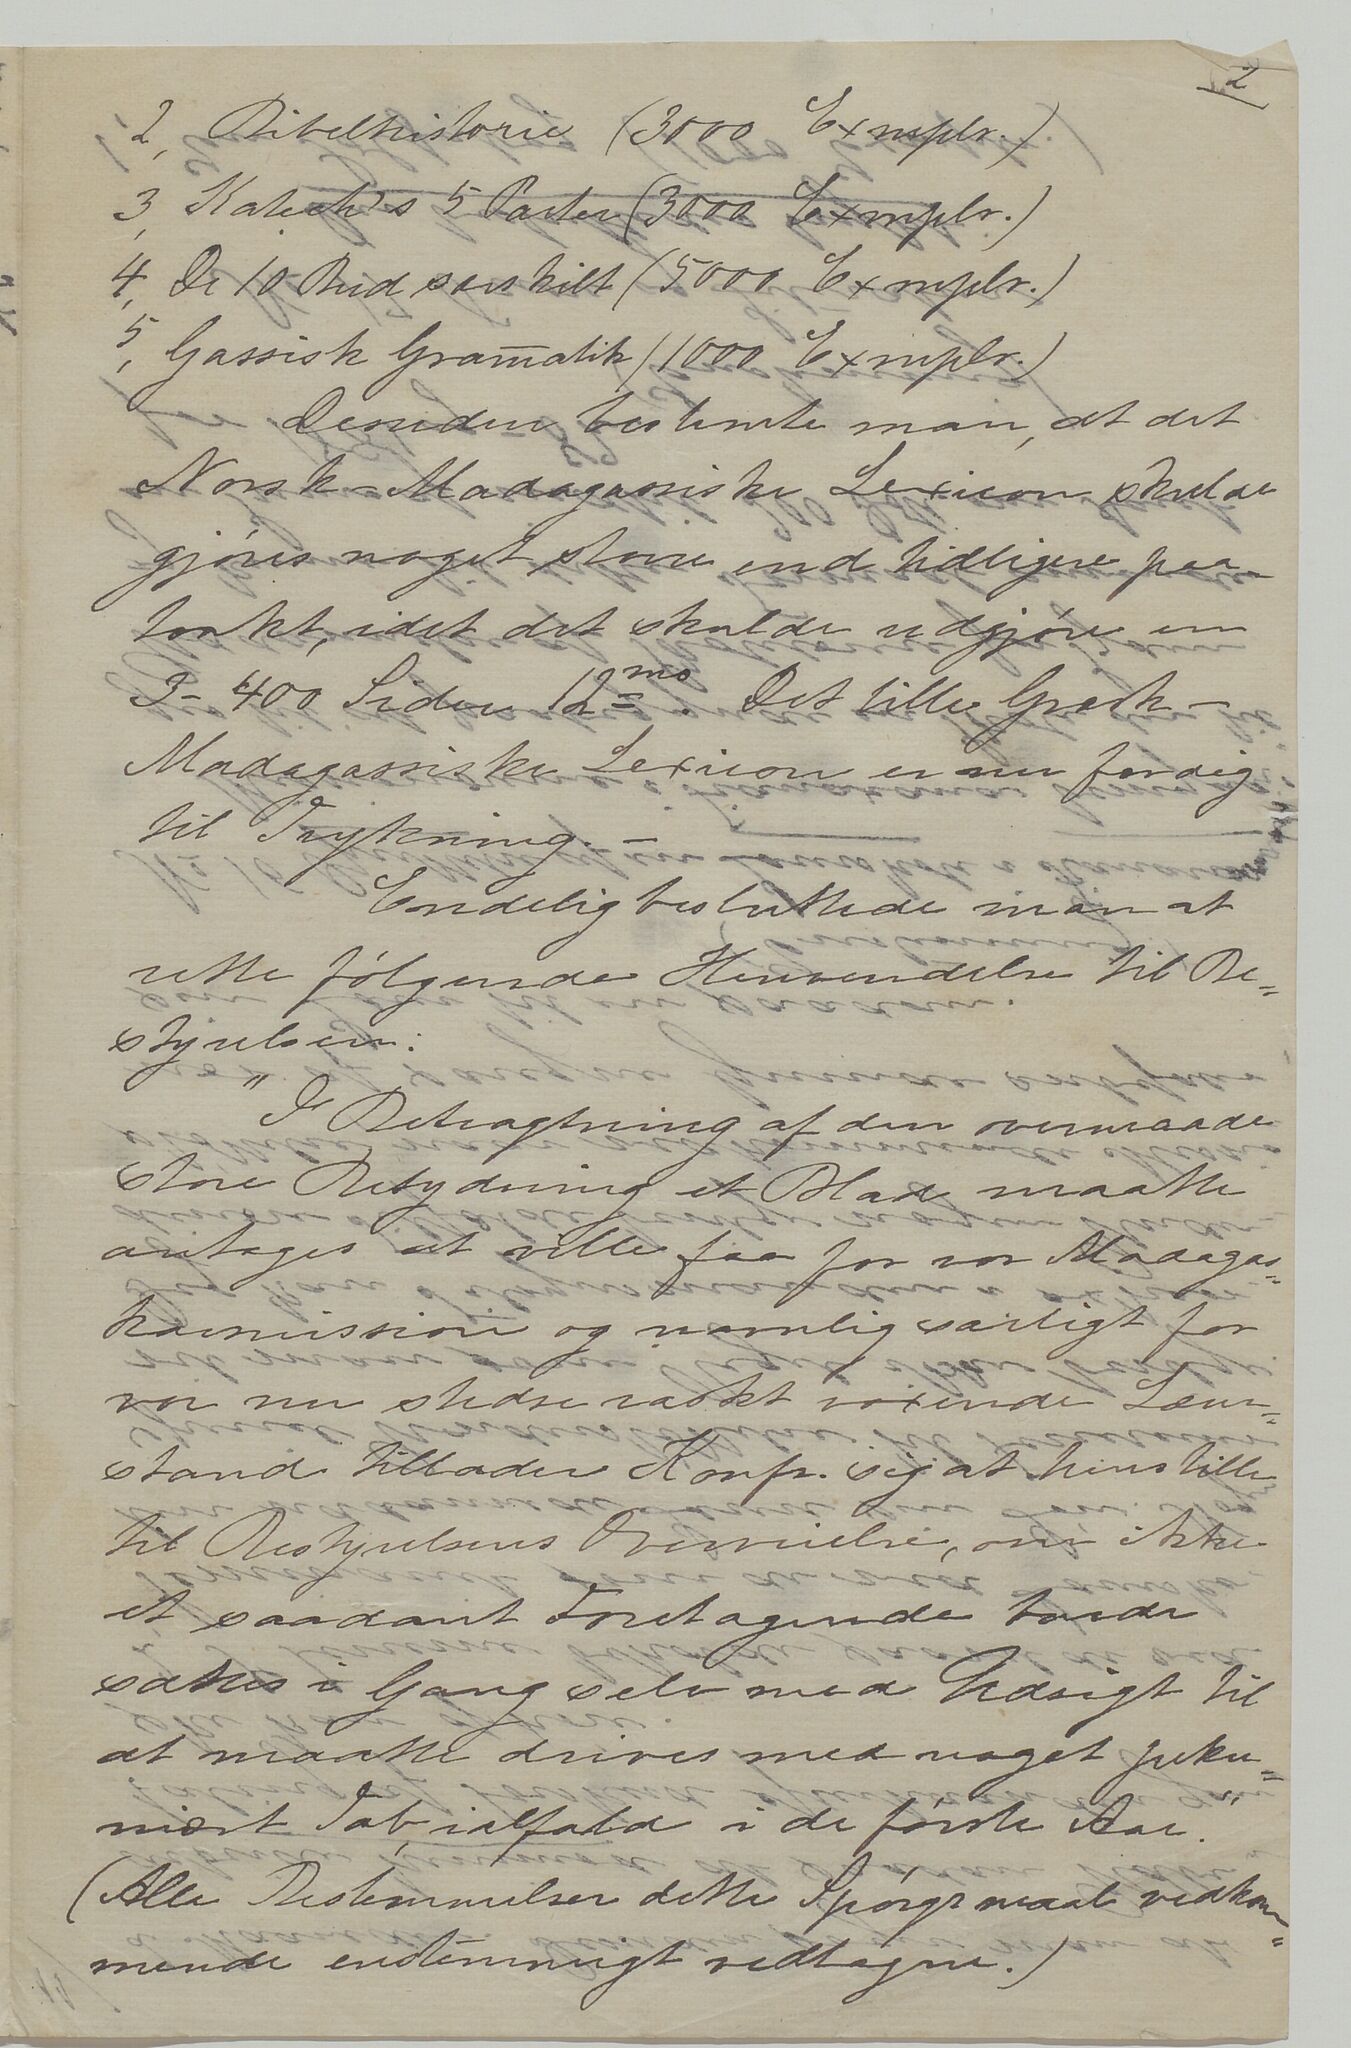 2
2, Bibelhistorie (3000 Exmplr.)
3, Katech's 5 Parter (3000 Exmplr.)
4, De 10 Bud særskilt (5000 Exmplr.)
5, Gassisk Gram̄atik (1000 Exmplr.)
Desuden bestemte man, at det
Norsk-Madagassiske Lexicon skulde
gjøres noget større end tidligere paa-
tænkt, idet det skulde udgjøre en
3-400 Sider 12mo. Det lille Græsk-
Madagassiske Lexicon er nu færdig
til Trykning. –
Endelig besluttede man at
rette følgende Henvendelse til Be=
styrelsen:
"I Betragtning af den overmaade
store Betydning et Blad maatte
antages at ville faa for vor Madagas=
karmission og navnlig særligt for
vor nu stedse raskt voxende Læser=
stand tillader Konfr. sig at henstille
til Bestyrelsens Overveielse, om ikke
et saadant Foretagende burde
sættes i Gang selv med Udsigt til
at maatte drives med noget peku=
niært Tab, ialfald i de første Aar."
(Alle Bestemmelser dette Spørgsmaal vedkom=
mende enstemmigt vedtagne.)